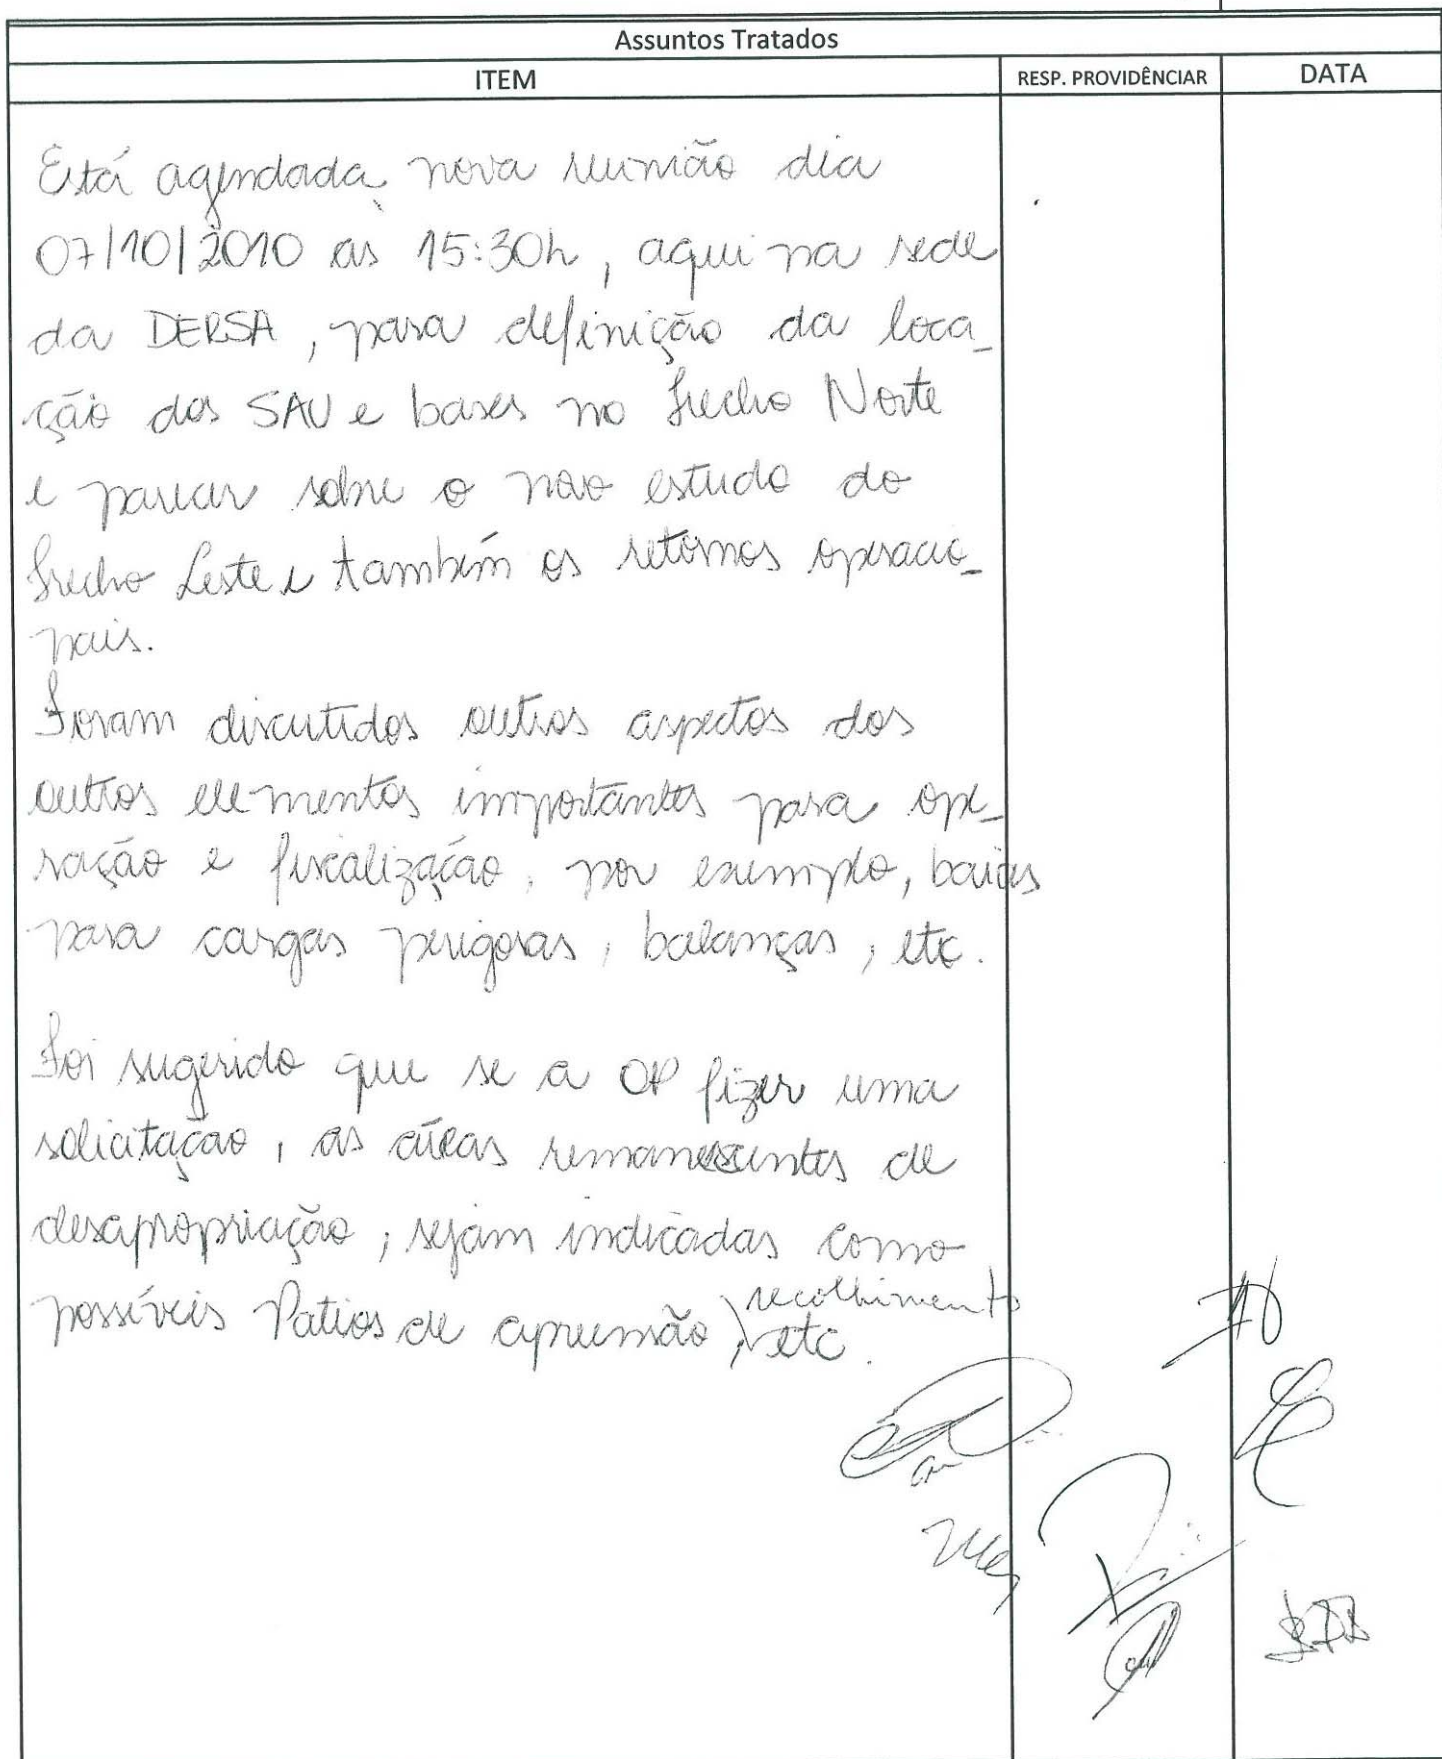 Assuntos Tratados
ITEM RESP. PROVIDÊNCIAR DATA
Está agendada nova reunião dia
07/10/2010 às 15:30h, aqui na sede
da DERSA, para definição da loca_
ção dos SAU e bases no trecho Norte
e parecer sobre o novo estudo do
trecho Leste e também os retornos operacio_
nais.
Foram discutidos outros aspectos dos
outros elementos importantes para ope_
ração e fiscalização, por exemplo, baias
para cargas perigosas, balanças, etc.
Foi sugerido que se a OP fizer uma
solicitação, as áreas remanescentes de
desapropriação, sejam indicadas como
recolhimento
possíveis Patios de apreensão, etc.